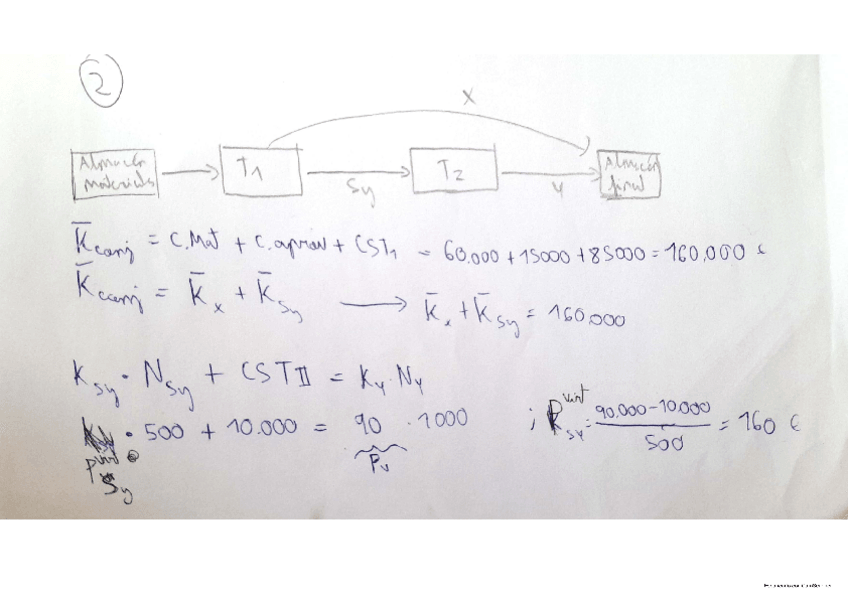 2
X
Almacén T1 T2 Almacén
materiales Sy Y final
K̅conj = C.Mat + C.aprov + CST1 = 60.000 + 15000 + 85000 = 160.000 €
K̅conj = K̅x + K̅Sy ⟶ K̅x + K̅Sy = 160.000
KSy · NSy + CSTII = Ky · Ny
· 500 + 10.000 = 90 · 1000 ; P unit Sy = 90.000 - 10.000 / 500 = 160 €
Pv
Sy